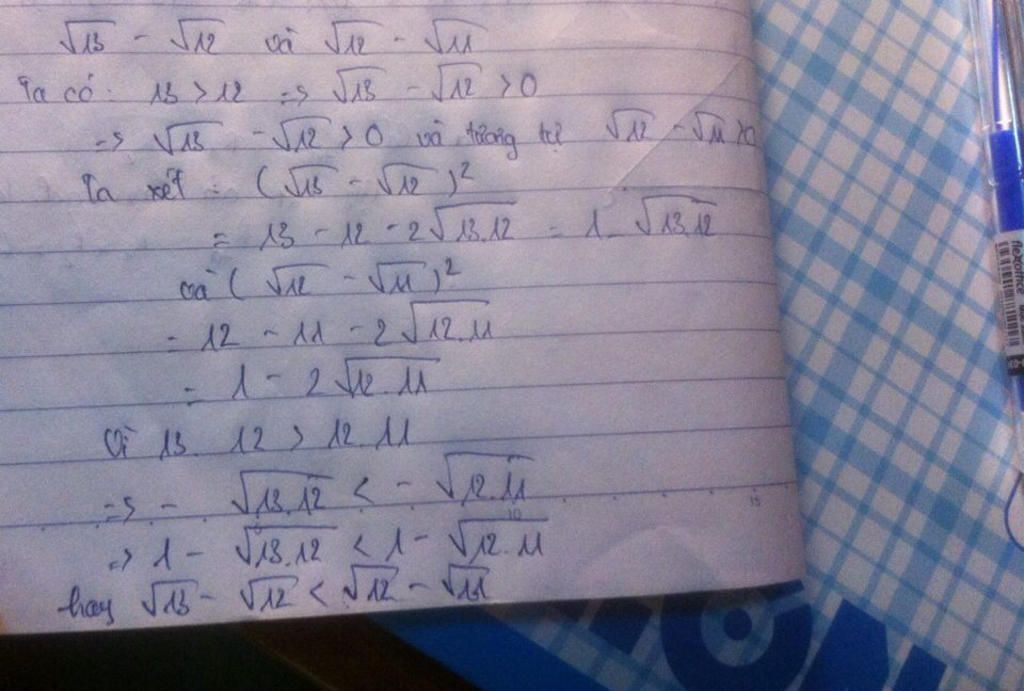 √13 - √12 và √12 - √11
Ta có: 13 > 12 => √13 - √12 > 0
=> √13 - √12 > 0 và tương tự √12 - √11 > 0
Ta xét: (√13 - √12)²
= 13 - 12 - 2√13.12 = 1 - √13.12
và (√12 - √11)²
= 12 - 11 - 2√12.11
= 1 - 2√12.11
Vì 13.12 > 12.11
=> - √13.12 < - √12.11
=> 1 - √13.12 < 1 - √12.11
hay √13 - √12 < √12 - √11
flexoffice
10
15